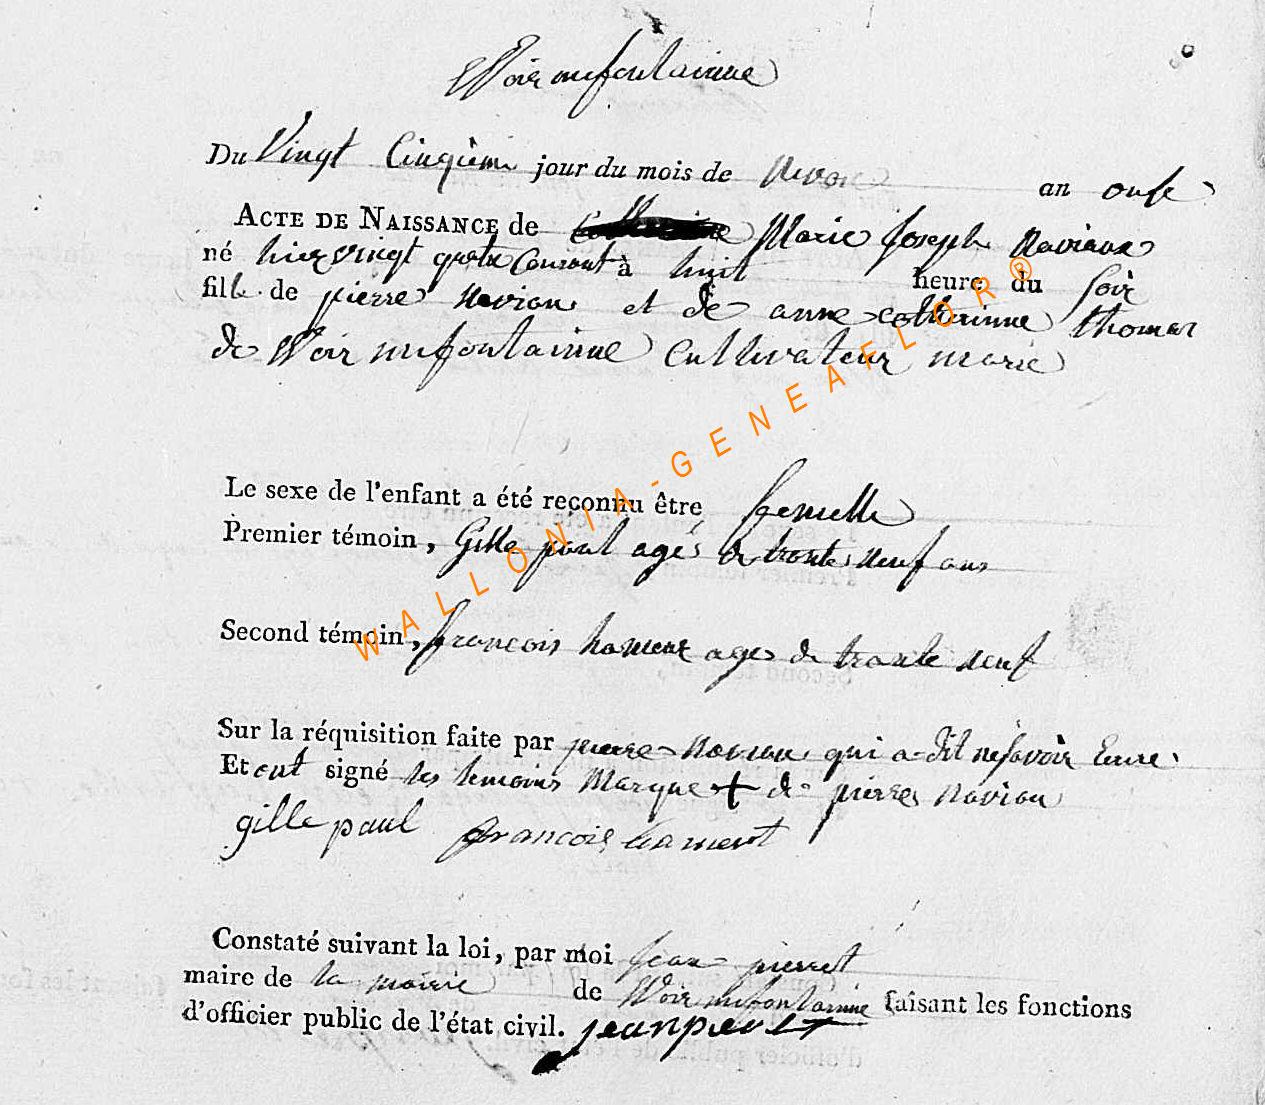 Woirmifontainne
Du Vingt Cinqiem jour du mois de nivose an onse
ACTE DE NAISSANCE de Marie Joseph Naviaux
né hier vingt quatre Courant à huit heure du soir
fille de pierre Naviau et de anne catherinne thomas
de Woirmifontainne Cultivateur marie
Le sexe de l'enfant a été reconnu être femelle
Premier témoin, Gille paul agés de trante neuf ans
Second témoin, francois hament ages de trante neuf
Sur la réquisition faite par pierre Naviau qui a dit ne savoir Ecrire
Et ont signé les temoins Marque + de pierre Naviau
gille paul francois hament
Constaté suivant la loi, par moi jean pierret
maire de la mairie de Woirmifontainne faisant les fonctions
d'officier public de l'état civil. jean pierret
WALLONIA-GENEAFLOR®